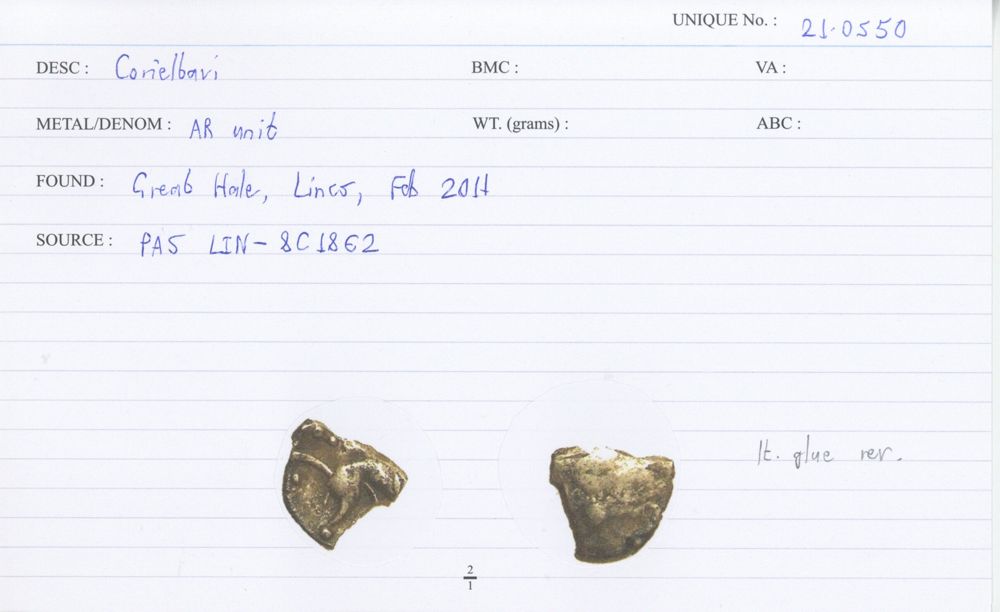 UNIQUE No. : 21.0550
DESC : Corieltavi BMC : VA :
METAL/DENOM : AR unit WT. (grams) : ABC :
FOUND : Great Hale, Lincs, Feb 2011
SOURCE : PAS LIN-8C18E2
lt. glue rev.
2
1